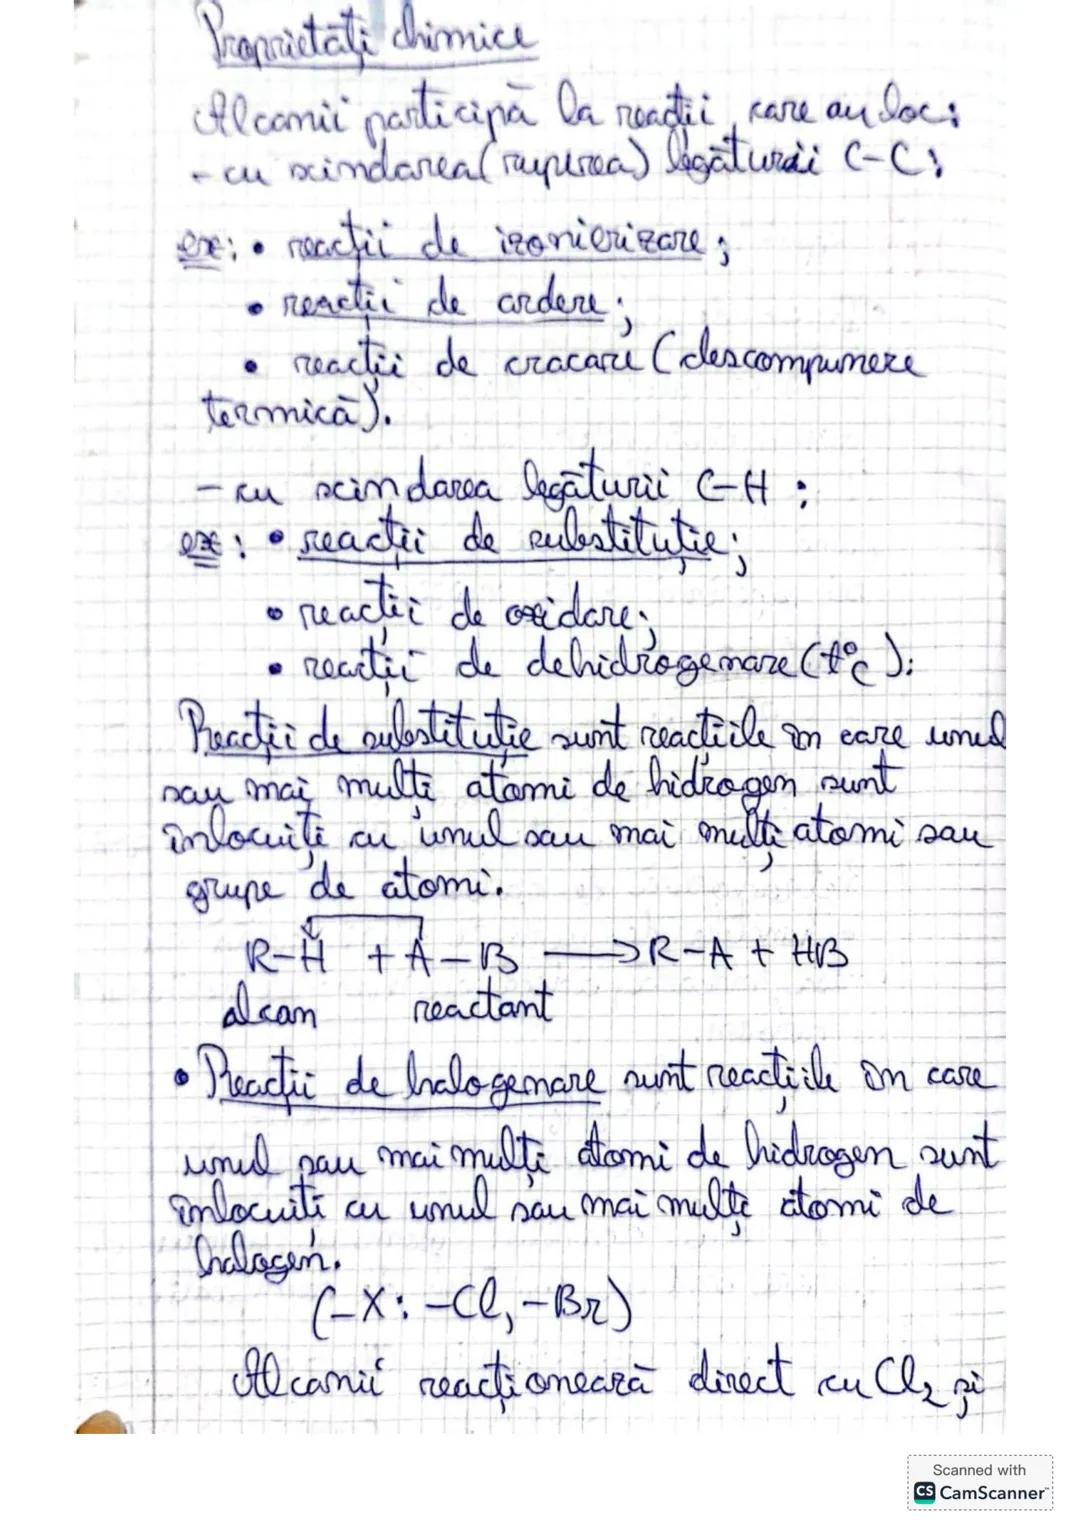 Proprietăți chimice
Alcanii participă la reacții care au loc:
- cu scindarea (ruperea) legăturii C-C;
ex: • reacții de izomerizare;
• reacții de ardere;
• reacții de cracare (descompunere
termică).
- cu scindarea legăturii C-H :
ex: • reacții de substituție;
• reacții de oxidare;
• reacții de dehidrogenare (t°C):
Reacții de substituție sunt reacțiile în care unul
sau mai multi atomi de hidrogen sunt
înlocuiți cu unul sau mai mulți atomi sau
grupe de atomi.
R-H + A-B ⟶ R-A + HB
alcan reactant
• Reacții de halogenare sunt reacțiile în care
unul sau mai mulți atomi de hidrogen sunt
înlocuiți cu unul sau mai mulți atomi de
halogen.
(-X: -Cl, -Br)
Alcanii reacționează direct cu Cl₂ și
Scanned with
CS CamScanner